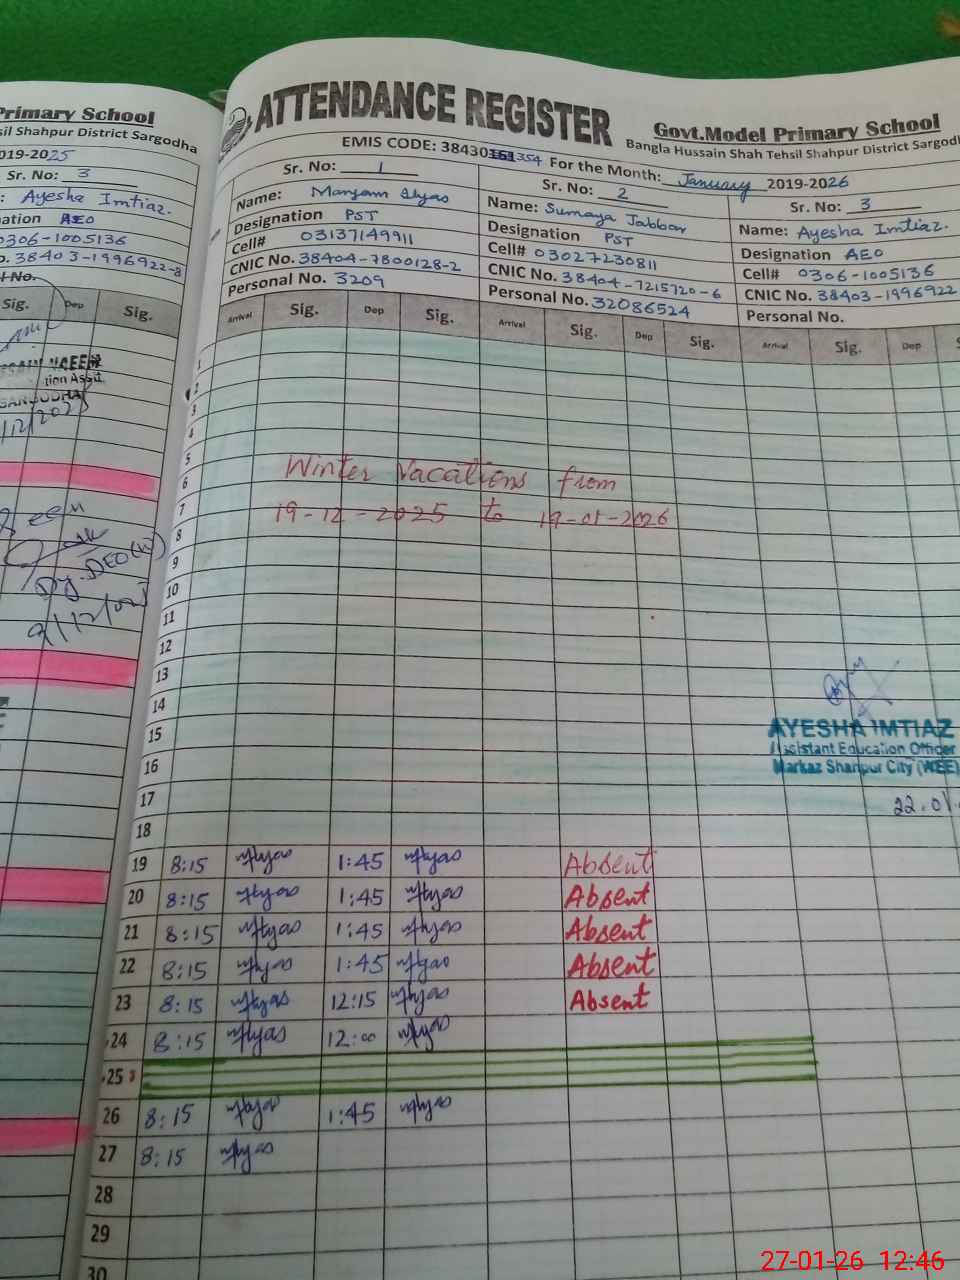 Primary School
Shahpur District Sargodha
019-2025
Sr. No: 3
Ayesha Imtiaz.
AEO
0306-1005136
38403-1996922-8
Sig. Dep Sig.
tion Assi
Dy. DEO
9/12/025
ATTENDANCE REGISTER
Govt.Model Primary School
Bangla Hussain Shah Tehsil Shahpur District Sargod
EMIS CODE: 38430 354 For the Month: January 2019-2026
Sr. No: 1
Name: Maryam Ilyas
Designation PST
Cell# 03137149911
CNIC No. 38404-7800128-2
Personal No. 3209
Sr. No: 2
Name: Sumaya Jabbar
Designation PST
Cell# 03027230811
CNIC No. 38404-7215720-6
Personal No. 32086524
Sr. No: 3
Name: Ayesha Imtiaz.
Designation AEO
Cell# 0306-1005136
CNIC No. 38403-1996922
Personal No.
Arrival Sig. Dep Sig. Arrival Sig. Dep Sig. Arrival Sig. Dep S
1
2
3
4
5
6 Winter Vacations from
7 19-12-2025 to 19-01-2026
8
9
10
11
12
13
14
15 AYESHA IMTIAZ
Assistant Education Officer
16 Markaz Shahpur City (WEE)
17 22.01
18
19 8:15 Ilyas 1:45 Ilyas Absent
20 8:15 Ilyas 1:45 Ilyas Absent
21 8:15 Ilyas 1:45 Ilyas Absent
22 8:15 Ilyas 1:45 Ilyas Absent
23 8:15 Ilyas 12:15 Ilyas Absent
24 8:15 Ilyas 12:00 Ilyas
25
26 8:15 Ilyas 1:45 Ilyas
27 8:15 Ilyas
28
29
30
27-01-26 12:46